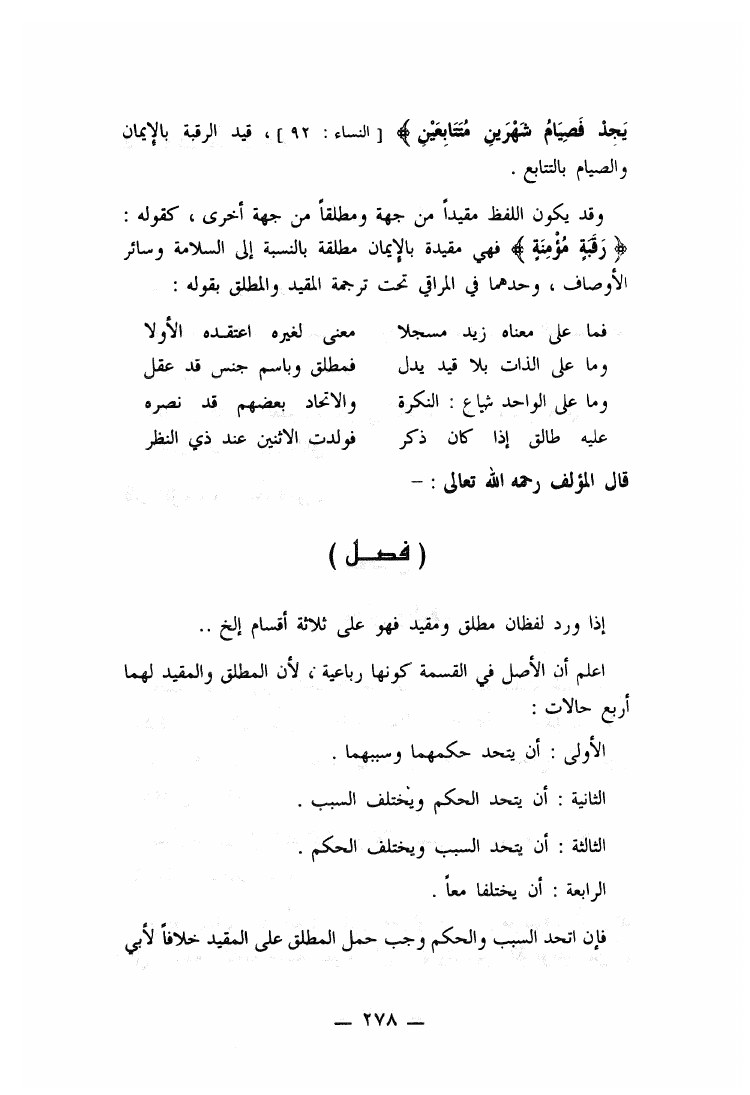 يَجِدْ فَصِيَامُ شَهْرَينِ مُتَتَابِعَيْنِ ﴾ [ النساء : ٩٢ ] ، قيد الرقبة بالإيمان
والصيام بالتتابع .
وقد يكون اللفظ مقيداً من جهة ومطلقاً من جهة أخرى ، كقوله :
﴿ رَقَبَةٍ مُؤْمِنَةٍ ﴾ فهي مقيدة بالإيمان مطلقة بالنسبة إلى السلامة وسائر
الأوصاف ، وحدهما في المراقي تحت ترجمة المقيد والمطلق بقوله :
فما على معناه زيد مسجلا معنى لغيره اعتقــده الأولا
وما على الذات بلا قيد يدل فمطلق وباسم جنس قد عقل
وما على الواحد شياع : النكرة والاتحاد بعضهم قد نصره
عليه طالق إذا كان ذكر فولدت الاثنين عند ذي النظر
قال المؤلف رحمه الله تعالى : –
( فصــل )
إذا ورد لفظان مطلق ومقيد فهو على ثلاثة أقسام إلخ ..
اعلم أن الأصل في القسمة كونها رباعية ، لأن المطلق والمقيد لهما
أربع حالات :
الأولى : أن يتحد حكمهما وسببهما .
الثانية : أن يتحد الحكم ويختلف السبب .
الثالثة : أن يتحد السبب ويختلف الحكم .
الرابعة : أن يختلفا معاً .
فإن اتحد السبب والحكم وجب حمل المطلق على المقيد خلافاً لأبي
— ٢٧٨ —